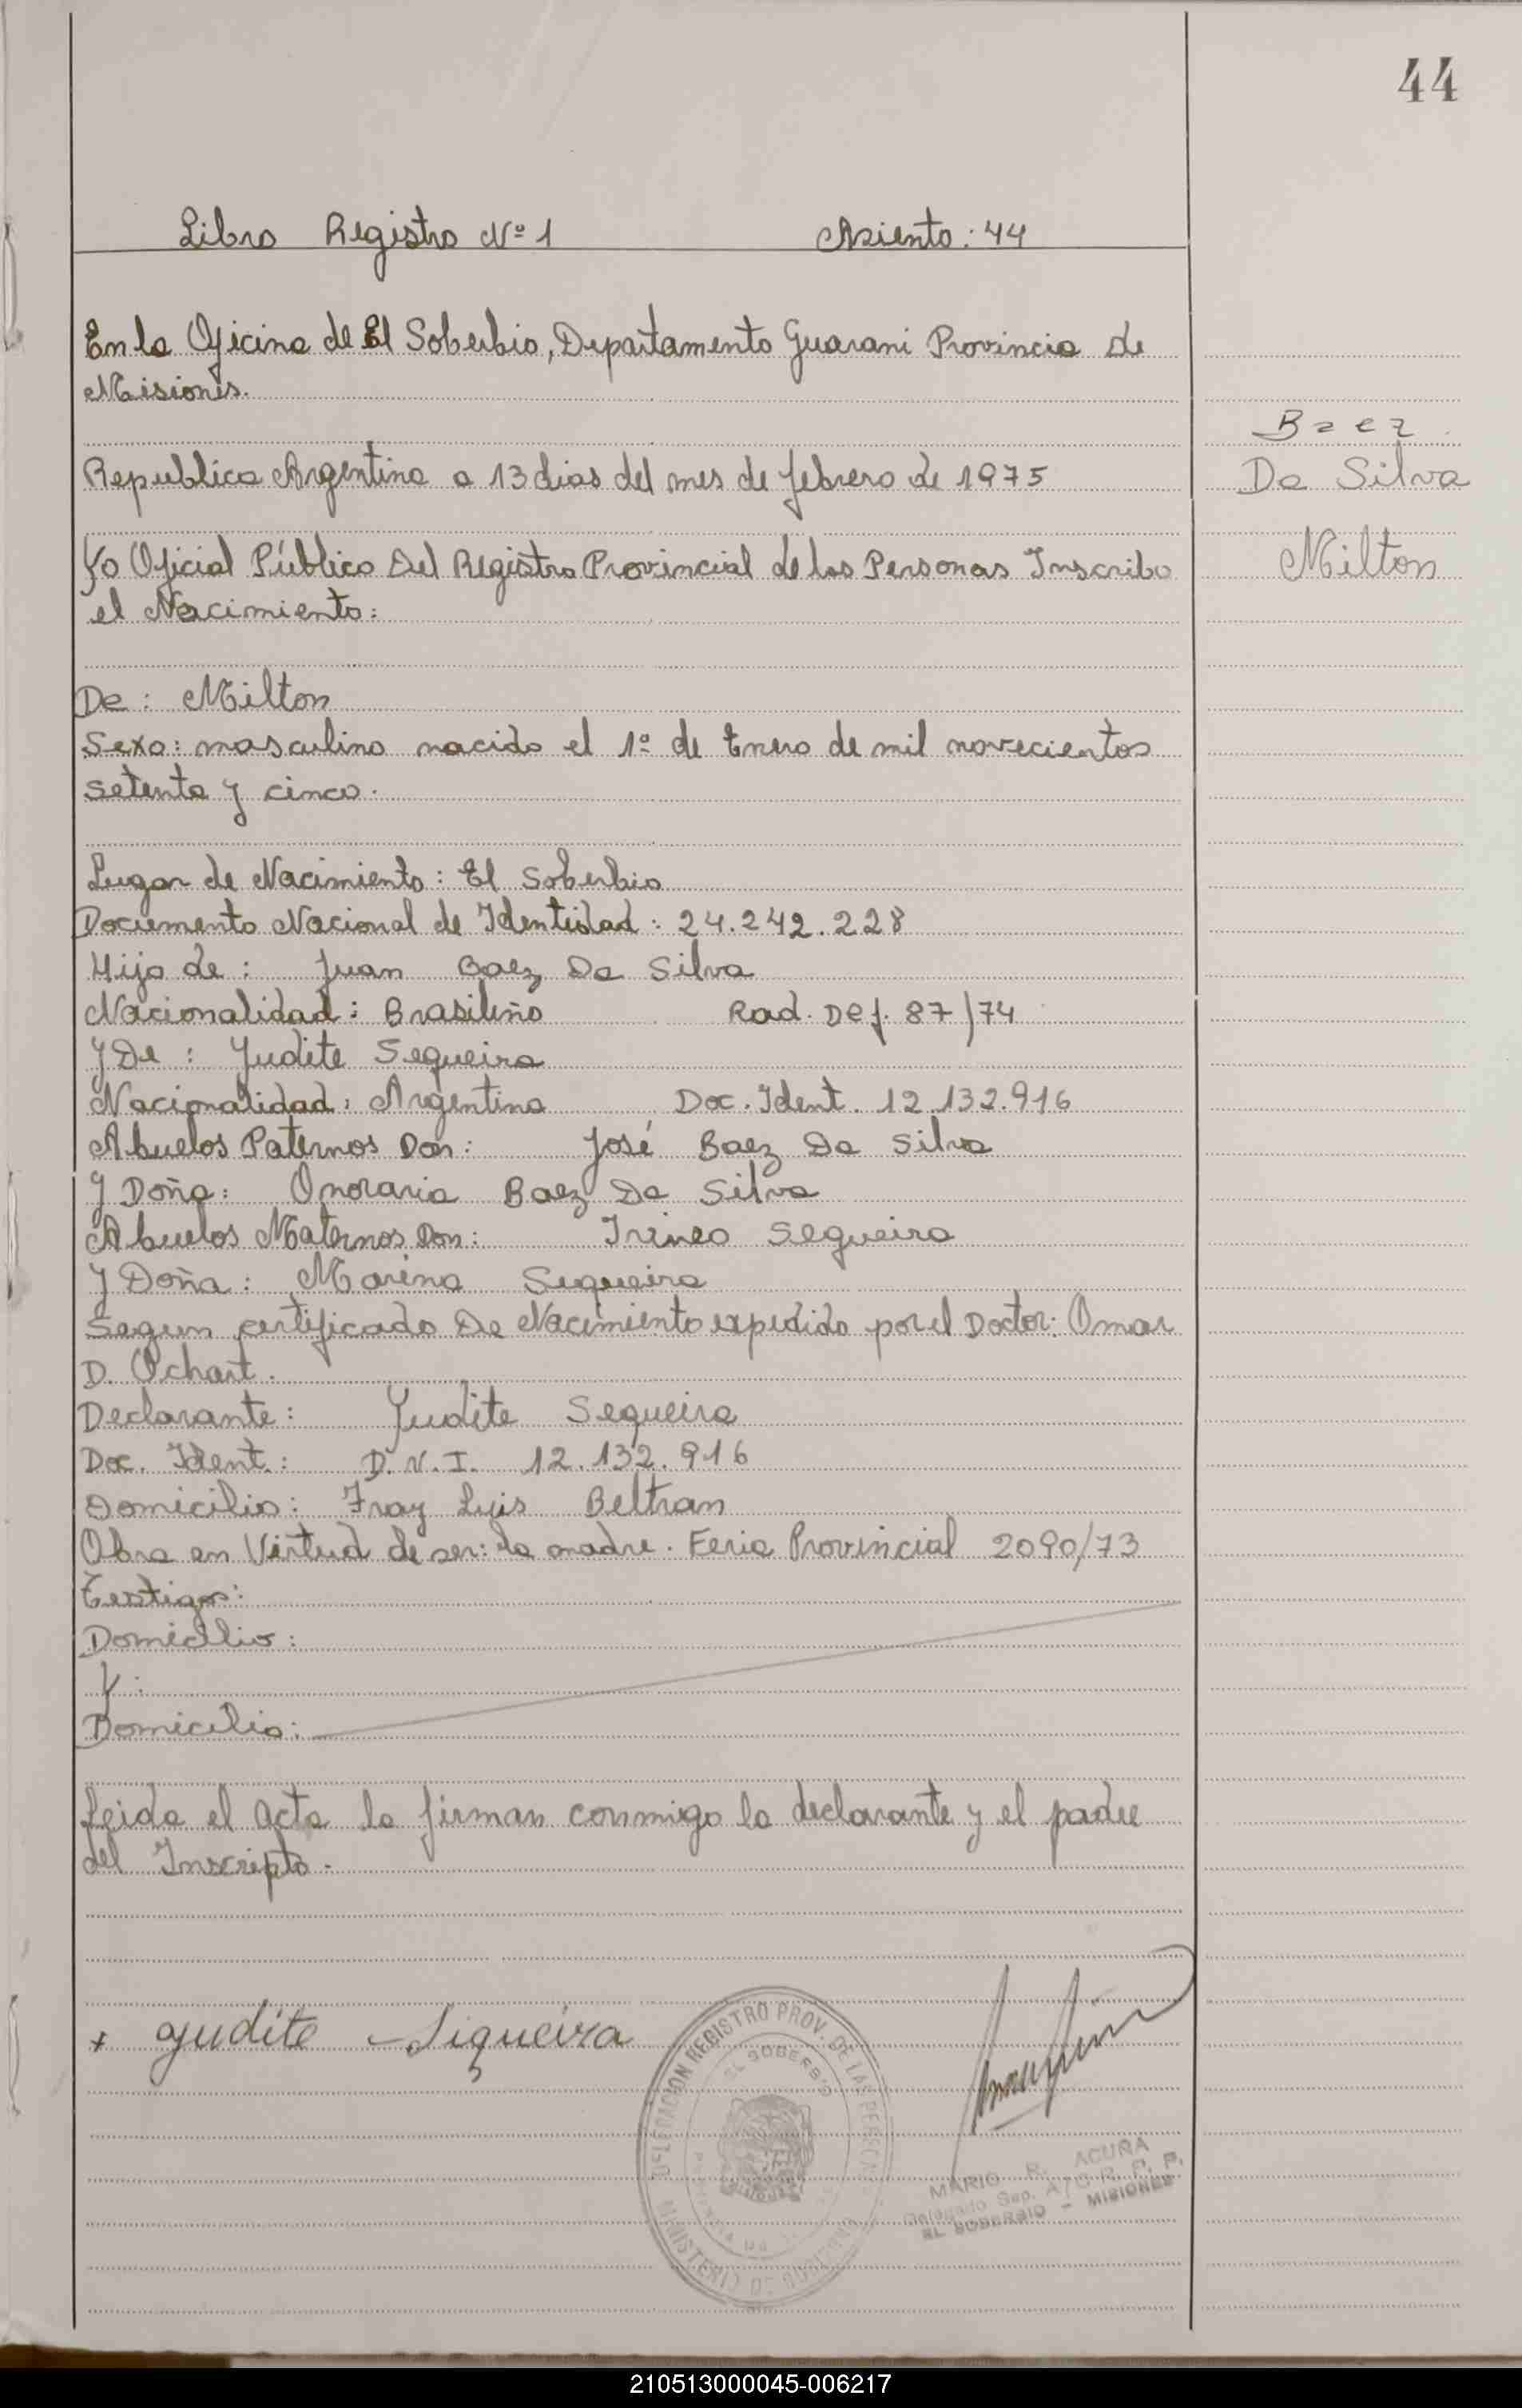 44
Libro Registro Nº 1 Asiento: 44
En la Oficina de El Soberbio, Departamento Guarani Provincia de
Misiones.
Baez
Republica Argentina a 13 dias del mes de febrero de 1975
Da Silva
Yo Oficial Público Del Registro Provincial de las Personas Inscribo
Milton
el Nacimiento:
De: Milton
Sexo: masculino nacido el 1º de Enero de mil novecientos
setenta y cinco.
Lugar de Nacimiento: El Soberbio
Documento Nacional de Identidad: 24.242.228
Hijo de: Juan Baez Da Silva
Nacionalidad: Brasileño Rad. Def. 87/74
y De: Yudite Sequeira
Nacionalidad: Argentina Doc. Ident. 12.132.916
Abuelos Paternos Don: José Baez Da Silva
y Doña: Onoraria Baez Da Silva
Abuelos Maternos Don: Irineo Sequeira
y Doña: Marina Sequeira
Segun certificado De Nacimiento expedido por el Doctor: Omar
D. Ochart.
Declarante: Yudite Sequeira
Doc. Ident.: D.N.I. 12.132.916
Domicilio: Fray Luis Beltran
Obra en Virtud de ser: la madre. Provincial 2090/73
Testigos:
Domicilio:
Y:
Domicilio:
Leida el acta la firman conmigo la declarante y el padre
del Inscripto.
+ Yudite Siqueira
DELEGACION REGISTRO PROV. DE LAS PERSONAS
EL SOBERBIO
MISIONES
MINISTERIO DE GOBIERNO
MARIO R. ACUÑA
Delegado Sep. A/C R. P. P.
EL SOBERBIO - MISIONES
210513000045-006217